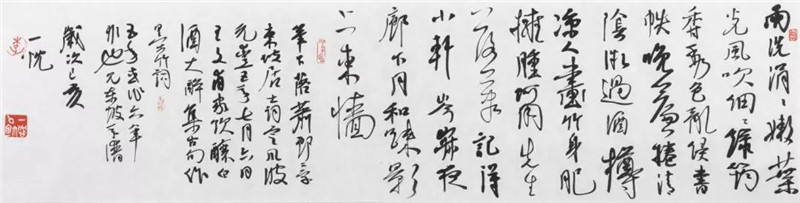 雨洗涓〻嫩葉
光風吹細〻綠筠
香秀色亂侵書
帙晚簾捲清
陰微過酒樽
涼人畫竹身肥
擁腫何用先生
落筆 記得
小軒岑寂夜
廊下月和疎影
上東墻
東坡居士詞定風波
元豐五年七月六日
王文甫家飲釀白
酒大醉集古句作
墨竹詞
歲次己亥